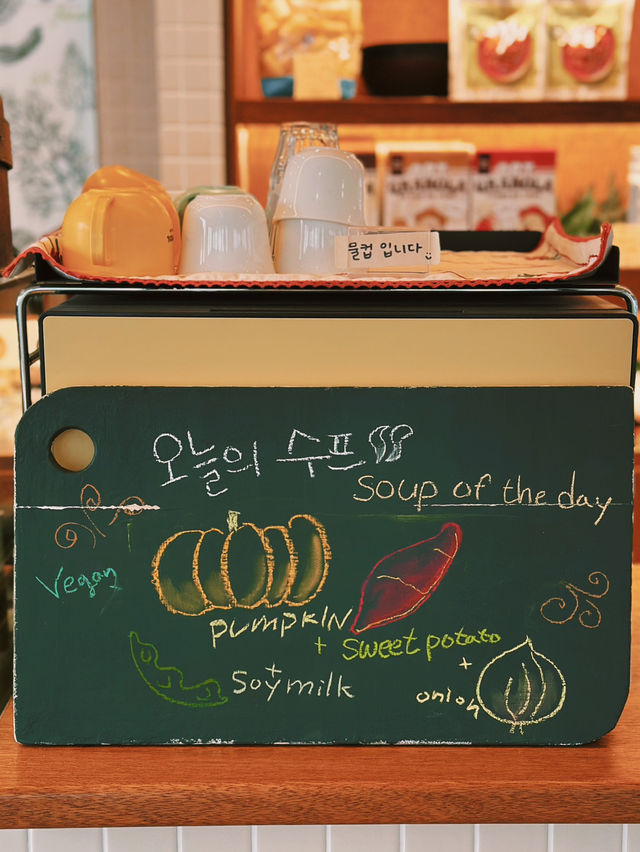 물컵 입니다
GRANOLA
GRANOLA
오늘의 수프
soup of the day
Vegan
pumpkin
+ sweet potato
+
soymilk
+
onion